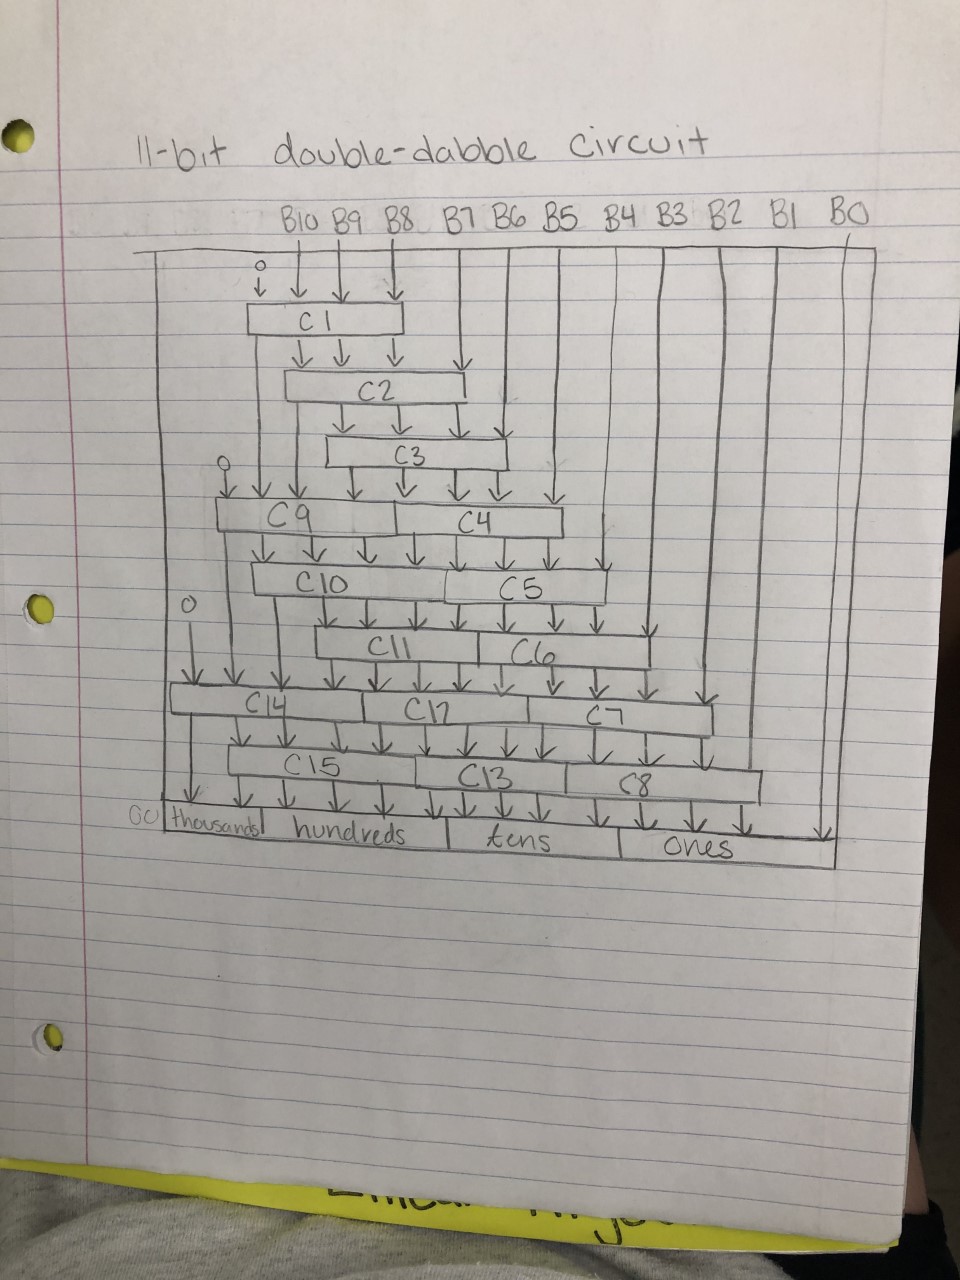 11-bit double-dabble circuit
B10 B9 B8 B7 B6 B5 B4 B3 B2 B1 B0
0
C1
C2
C3
0
C9 C4
C10 C5
0
C11 C6
C14 C12 C7
C15 C13 C8
thousands hundreds tens ones